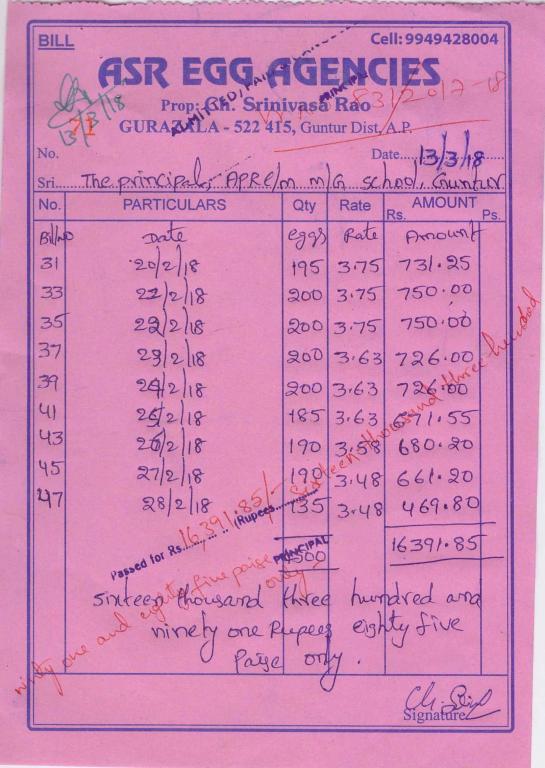 BILL
Cell: 9949428004
ASR EGG AGENCIES
Prop: Ch. Srinivasa Rao
GURAZALA - 522 415, Guntur Dist, A.P.
13/3/18
71
ADMITTED/PAID
PRINCIPAL
No.
Date 13/3/18
Sri The principal, APRE/m M/G school, Guntur
No. PARTICULARS Qty Rate AMOUNT
Rs. Ps.
Bill No Date eggs Rate Amount
31 20/2/18 195 3.75 731.25
33 22/2/18 200 3.75 750.00
35 22/2/18 200 3.75 750.00
37 23/2/18 200 3.63 726.00
39 24/2/18 200 3.63 726.00
41 25/2/18 185 3.63 671.55
43 26/2/18 190 3.58 680.20
45 27/2/18 190 3.48 661.20
47 28/2/18 135 3.48 469.80
16391.85
Passed for Rs. 16,391.85/- (Rupees Sixteen thousand three hundred
ninty one and eighty five paise only
PRINCIPAL
sixteen thousand three hundred and
ninety one Rupees eighty five
Paise only.
Signature